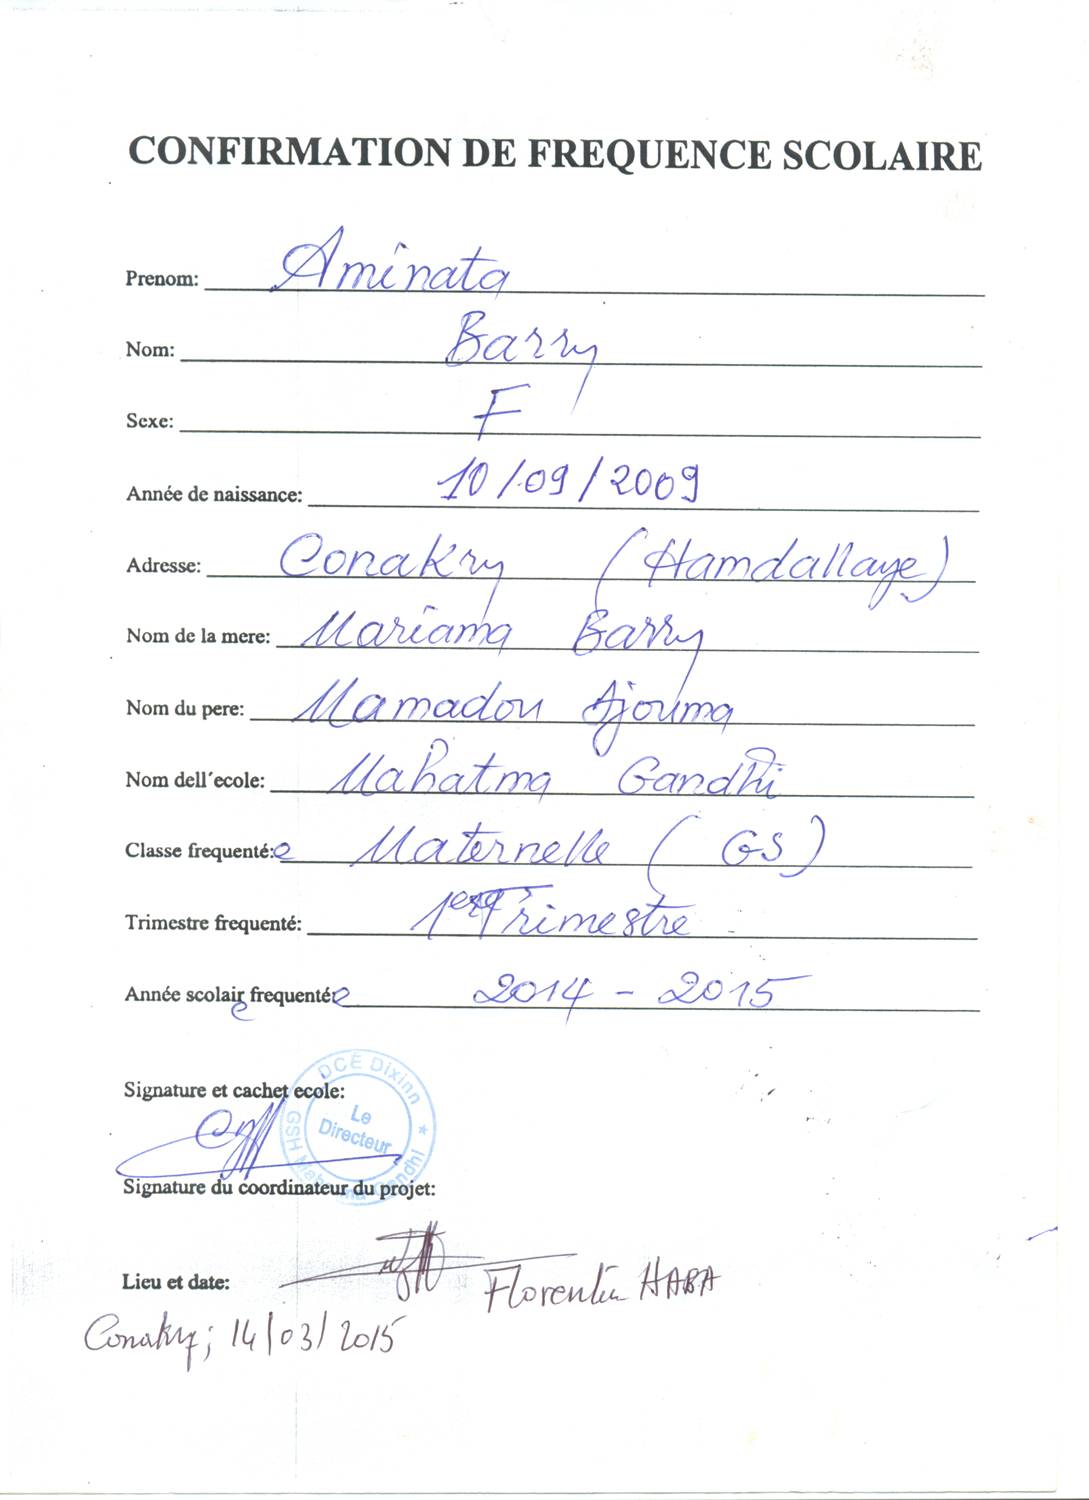 CONFIRMATION DE FREQUENCE SCOLAIRE
Prenom: Aminata
Nom: Barry
Sexe: F
Année de naissance: 10/09/2009
Adresse: Conakry (Hamdallaye)
Nom de la mere: Mariama Barry
Nom du pere: Mamadou Ajouma
Nom dell´ecole: Mahatma Gandhi
Classe frequenté:e Maternelle (GS)
Trimestre frequenté: 1er Trimestre
Année scolaire frequentée 2014 - 2015
Signature et cachet ecole:
DCE Dixinn
Le
Directeur
GSH Mahatma Gandhi
Signature du coordinateur du projet:
Lieu et date: Florentin HABA
Conakry; 14/03/2015